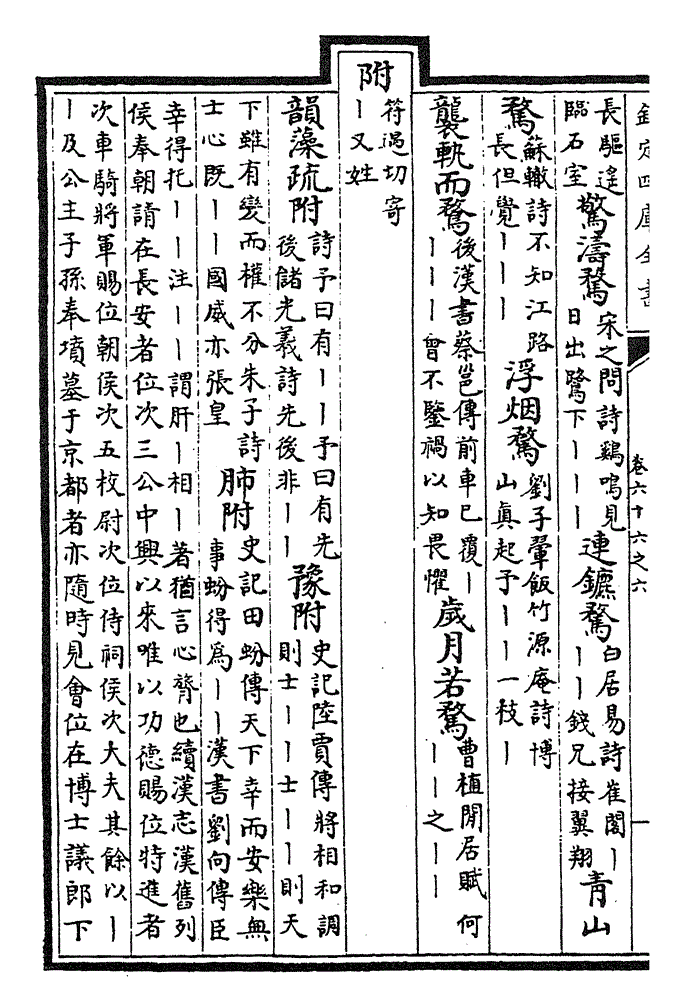 欽定四庫全書 卷六十六之六 一
長驅遙
臨石室
驚濤騖
宋之問詩鷄鳴見
日出鷺下丨丨丨
連鑣騖
白居易詩崔閣丨
丨丨錢兄接翼翔
青山
騖
蘇轍詩不知江路
長但覺丨丨丨
浮烟騖
劉子翬飯竹源庵詩博
山眞起予丨丨一枝丨
襲軌而騖
後漢書蔡邕傳前車已覆丨
丨丨丨曾不鑒禍以知畏懼
歲月若騖
曹植閒居賦何
丨丨之丨丨
附
符遇切寄
丨又姓
韻藻疏附
詩予曰有丨丨予曰有先
後儲光羲詩先後非丨丨
豫附
史記陸賈傳將相和調
則士丨丨士丨丨則天
下雖有變而權不分朱子詩
士心既丨丨國威亦張皇
肺附
史記田蚡傳天下幸而安樂無
事蚡得爲丨丨漢書劉向傳臣
幸得托丨丨注丨丨謂肝丨相丨著猶言心膂也續漢志漢舊列
侯奉朝請在長安者位次三公中興以來唯以功德賜位特進者
次車騎將軍賜位朝侯次五枚尉次位侍祠侯次大夫其餘以丨
丨及公主子孫奉墳墓于京都者亦隨時見會位在博士議郎下